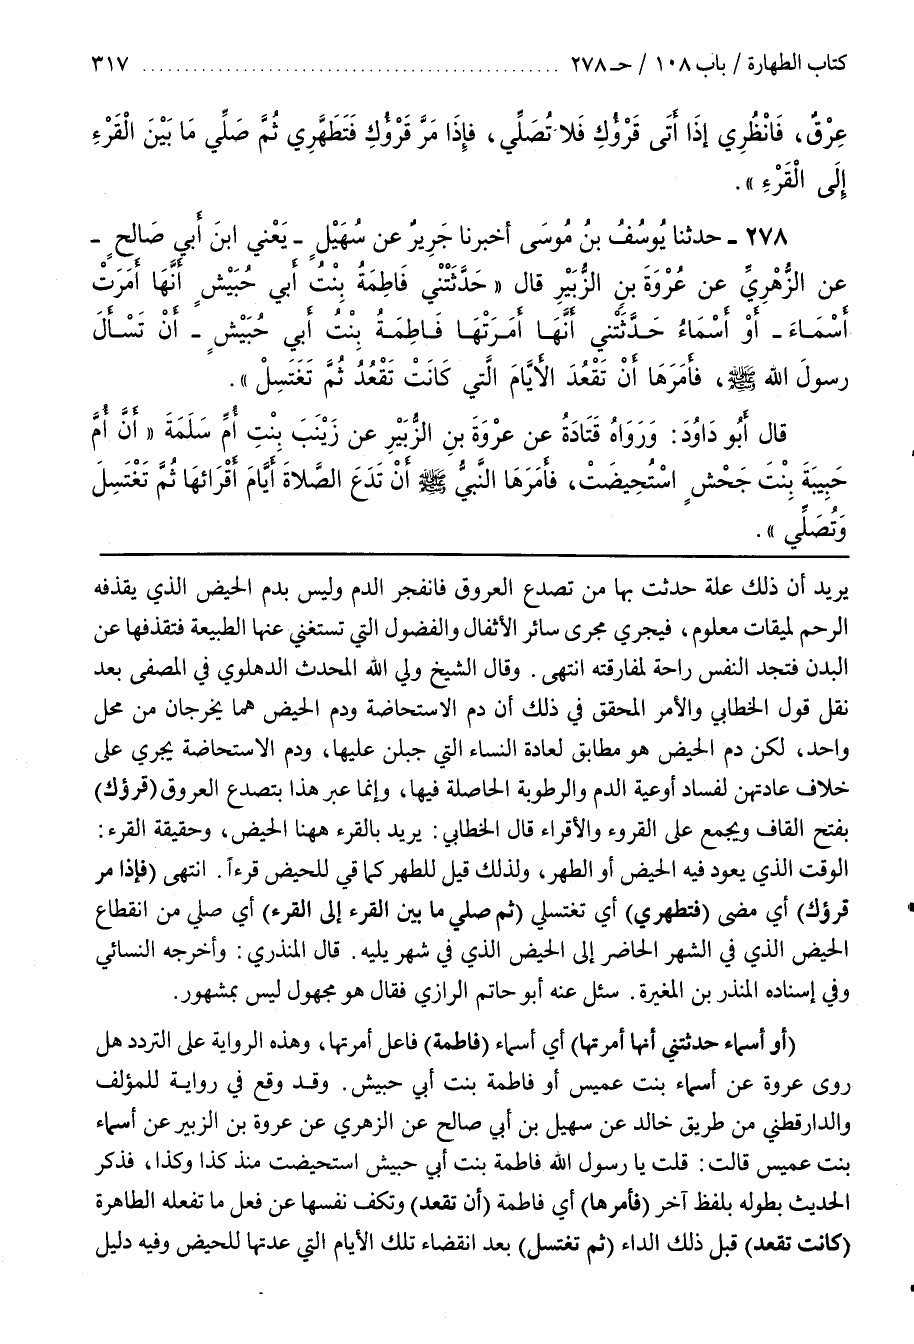 كتاب الطهارة / باب ١٠٨ / حـ ٢٧٨ ................................................ ٣١٧
عِرْقٌ، فَانْظُرِي إذَا أَتَى قَرْؤُكِ فَلا تُصَلِّي، فَإِذَا مَرَّ قَرْؤُكِ فَتَطَهَّرِي ثُمَّ صَلِّي مَا بَيْنَ الْقَرْءِ
إِلَى الْقَرْءِ ».
٢٧٨ ـ حدثنا يُوسُفُ بنُ مُوسَى أخبرنا جَرِيرٌ عن سُهَيْلٍ ـ يَعْنِي ابنَ أَبي صَالحٍ ـ
عن الزُّهْرِيِّ عن عُرْوَةَ بنِ الزُّبَيْرِ قال « حَدَّثَتْنِي فَاطِمَةُ بِنْتُ أبي حُبَيْشٍ أَنَّهَا أَمَرَتْ
أَسْمَاءَ ـ أَوْ أَسْمَاءُ حَدَّثَتْنِي أَنَّهَا أَمَرَتْهَا فَاطِمَةُ بِنْتُ أبي حُبَيْشٍ ـ أَنْ تَسْأَلَ
رسولَ الله ﷺ، فأَمَرَهَا أَنْ تَقْعُدَ الأَيَّامَ الَّتي كَانَتْ تَقْعُدُ ثُمَّ تَغْتَسِلْ ».
قال أَبُو دَاوُدَ: وَرَوَاهُ قَتَادَةُ عن عرْوَةَ بنِ الزُّبَيْرِ عن زَيْنَبَ بِنْتِ أُمِّ سَلَمَةَ « أَنَّ أُمَّ
حَبِيبَةَ بِنْتَ جَحْشٍ اسْتُحِيضَتْ، فأَمَرَهَا النَّبيُّ ﷺ أَنْ تَدَعَ الصَّلاةَ أَيَّامَ أَقْرَائهَا ثُمَّ تَغْتَسِلَ
وَتُصَلِّي ».
يريد أن ذلك علة حدثت بها من تصدع العروق فانفجر الدم وليس بدم الحيض الذي يقذفه
الرحم لميقات معلوم، فيجري مجرى سائر الأثفال والفضول التي تستغني عنها الطبيعة فتقذفها عن
البدن فتجد النفس راحة لمفارقته انتهى. وقال الشيخ ولي الله المحدث الدهلوي في المصفى بعد
نقل قول الخطابي والأمر المحقق في ذلك أن دم الاستحاضة ودم الحيض هما يخرجان من محل
واحد، لكن دم الحيض هو مطابق لعادة النساء التي جبلن عليها، ودم الاستحاضة يجري على
خلاف عادتهن لفساد أوعية الدم والرطوبة الحاصلة فيها، وإنما عبر هذا بتصدع العروق (قرؤك)
بفتح القاف ويجمع على القروء والأقراء قال الخطابي: يريد بالقرء ههنا الحيض، وحقيقة القرء:
الوقت الذي يعود فيه الحيض أو الطهر، ولذلك قيل للطهر كما قي للحيض قرءاً. انتهى (فإذا مر
قرؤك) أي مضى (فتطهري) أي تغتسلي (ثم صلي ما بين القرء إلى القرء) أي صلي من انقطاع
الحيض الذي في الشهر الحاضر إلى الحيض الذي في شهر يليه. قال المنذري: وأخرجه النسائي
وفي إسناده المنذر بن المغيرة. سئل عنه أبو حاتم الرازي فقال هو مجهول ليس بمشهور.
(أو أسماء حدثتني أنها أمرتها) أي أسماء (فاطمة) فاعل أمرتها، وهذه الرواية على التردد هل
روى عروة عن أسماء بنت عميس أو فاطمة بنت أبي حبيش. وقد وقع في رواية للمؤلف
والدارقطني من طريق خالد عن سهيل بن أبي صالح عن الزهري عن عروة بن الزبير عن أسماء
بنت عميس قالت: قلت يا رسول الله فاطمة بنت أبي حبيش استحيضت منذ كذا وكذا، فذكر
الحديث بطوله بلفظ آخر (فأمرها) أي فاطمة (أن تقعد) وتكف نفسها عن فعل ما تفعله الطاهرة
(كانت تقعد) قبل ذلك الداء (ثم تغتسل) بعد انقضاء تلك الأيام التي عدتها للحيض وفيه دليل